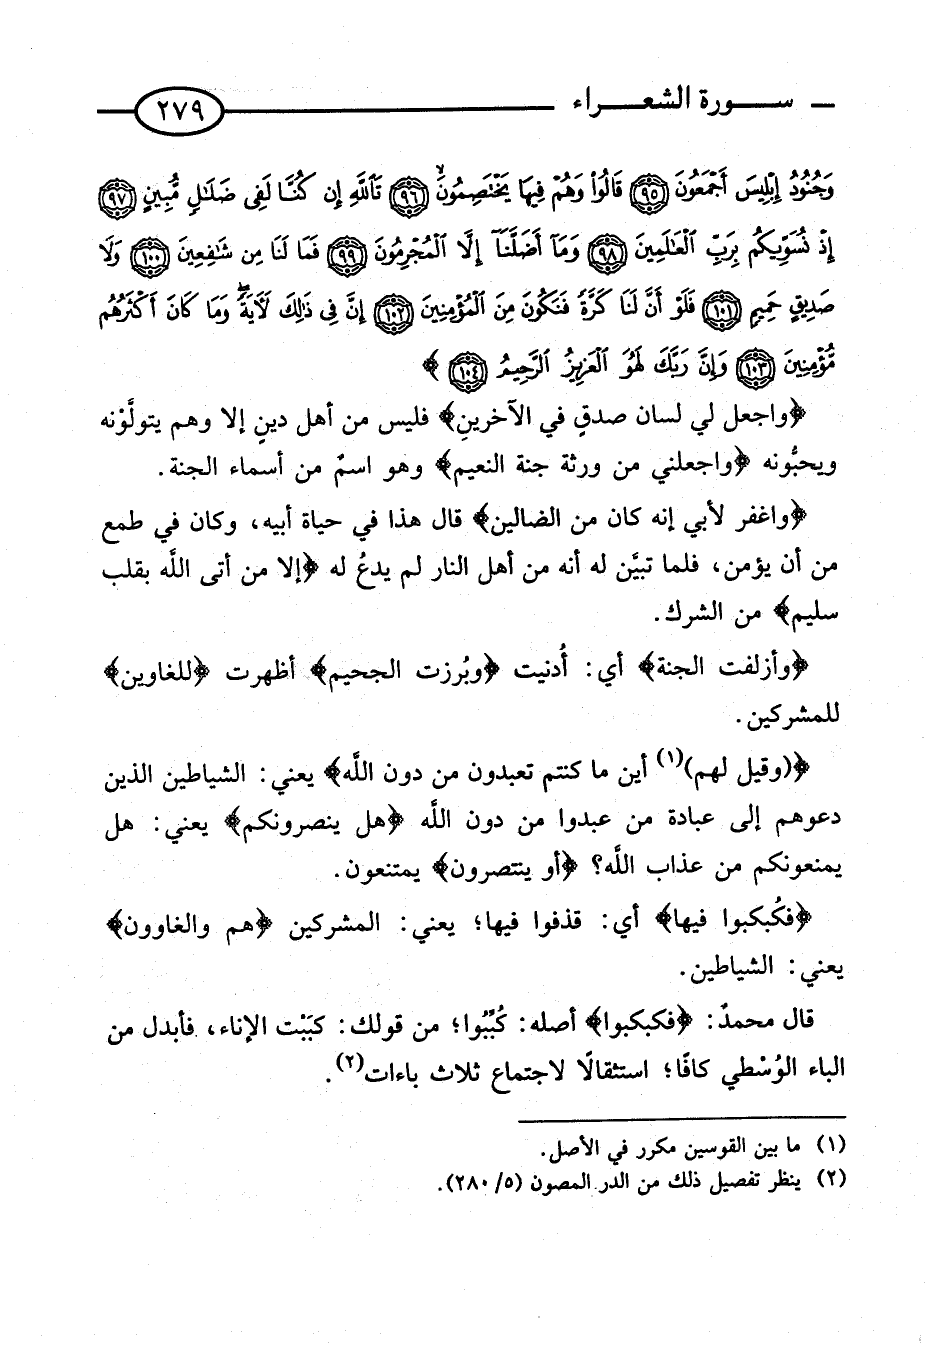 سورة الشعراء ٢٧٩
وَجُنُودُ إِبْلِيسَ أَجْمَعُونَ ٩٥ قَالُوا۟ وَهُمْ فِيهَا يَخْتَصِمُونَ ٩٦ تَٱللَّهِ إِن كُنَّا لَفِى ضَلَٰلٍ مُّبِينٍ ٩٧
إِذْ نُسَوِّيكُم بِرَبِّ ٱلْعَٰلَمِينَ ٩٨ وَمَآ أَضَلَّنَآ إِلَّا ٱلْمُجْرِمُونَ ٩٩ فَمَا لَنَا مِن شَٰفِعِينَ ١٠٠ وَلَا
صَدِيقٍ حَمِيمٍ ١٠١ فَلَوْ أَنَّ لَنَا كَرَّةً فَنَكُونَ مِنَ ٱلْمُؤْمِنِينَ ١٠٢ إِنَّ فِى ذَٰلِكَ لَءَايَةً ۖ وَمَا كَانَ أَكْثَرُهُم
مُّؤْمِنِينَ ١٠٣ وَإِنَّ رَبَّكَ لَهُوَ ٱلْعَزِيزُ ٱلرَّحِيمُ ١٠٤ ﴾
﴿واجعل لي لسان صدقٍ في الآخرين﴾ فليس من أهل دينٍ إلا وهم يتولَّوْنه
ويحبُّونه ﴿واجعلني من ورثة جنة النعيم﴾ وهو اسمٌ من أسماء الجنة.
﴿واغفر لأبي إنه كان من الضالين﴾ قال هذا في حياة أبيه، وكان في طمع
من أن يؤمن، فلما تبيَّن له أنه من أهل النار لم يدعُ له ﴿إلا من أتى اللَّه بقلب
سليم﴾ من الشرك.
﴿وأزلفت الجنة﴾ أي: أُدنيت ﴿وبُرزت الجحيم﴾ أظهرت ﴿للغاوين﴾
للمشركين.
﴿(وقيل لهم)(١) أين ما كنتم تعبدون من دون اللَّه﴾ يعني: الشياطين الذين
دعوهم إلى عبادة من عبدوا من دون اللَّه ﴿هل ينصرونكم﴾ يعني: هل
يمنعونكم من عذاب اللَّه؟ ﴿أو ينتصرون﴾ يمتنعون.
﴿فكُبكبوا فيها﴾ أي: قذفوا فيها؛ يعني: المشركين ﴿هم والغاوون﴾
يعني: الشياطين.
قال محمدٌ: ﴿فكبكبوا﴾ أصله: كُبِّبُوا؛ من قولك: كبَبْت الإناء، فأبدل من
الباء الوُسْطي كافًا؛ استثقالًا لاجتماع ثلاث باءات(٢).
(١) ما بين القوسين مكرر في الأصل.
(٢) ينظر تفصيل ذلك من الدر المصون (٥/٢٨٠).